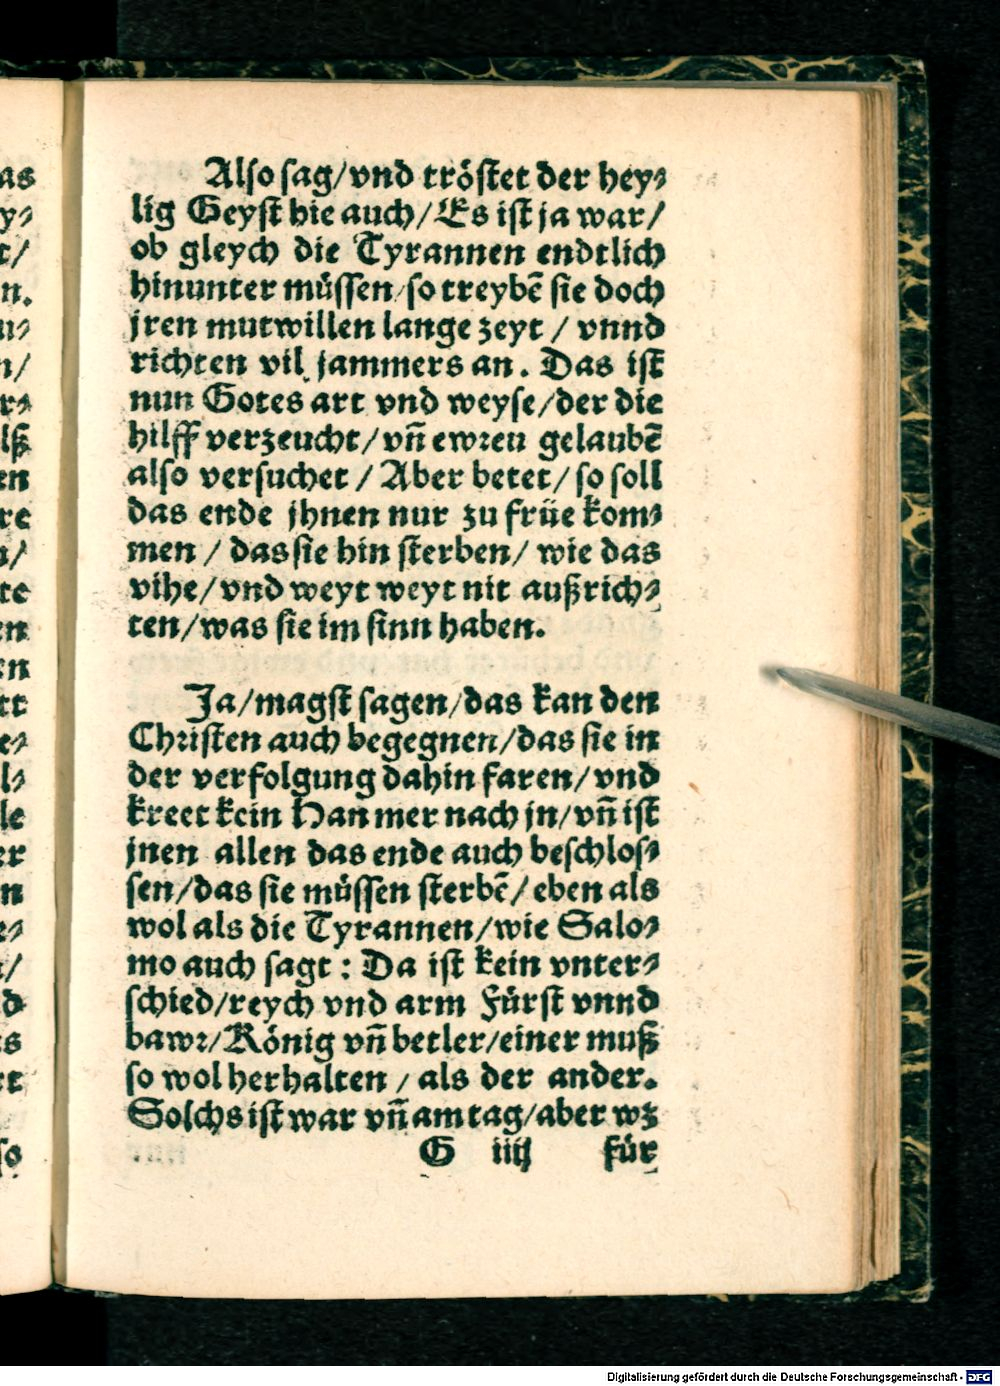 Also sag/vnd tröstet der hey⸗
lig Geyst hie auch/Es ist ja war/
ob gleych die Tyrannen endtlich
hinunter müssen/so treybẽ sie doch
jren mutwillen lange zeyt / vnnd
richten vil jammers an. Das ist
nun Gotes art vnd weyse/der die
hilff verzeucht/vñ ewren gelaubẽ
also versuchet / Aber betet/so soll
das ende jhnen nur zu früe kom⸗
men / das sie hin sterben/ wie das
vihe/vnd weyt weyt nit außrich⸗
ten/was sie im sinn haben.
Ja/magst sagen/das kan den
Christen auch begegnen/das sie in
der verfolgung dahin faren/vnd
kreet kein Han mer nach jn/vñ ist
jnen allen das ende auch beschlos⸗
sen/das sie müssen sterbẽ/eben als
wol als die Tyrannen/wie Salo⸗
mo auch sagt : Da ist kein vnter⸗
schied/reych vnd arm Fürst vnnd
bawr/König vñ betler/einer muß
so wol herhalten / als der ander.
Solchs ist war vñ am tag/aber wz
G iiij für
Digitalisierung gefördert durch die Deutsche Forschungsgemeinschaft - DFG